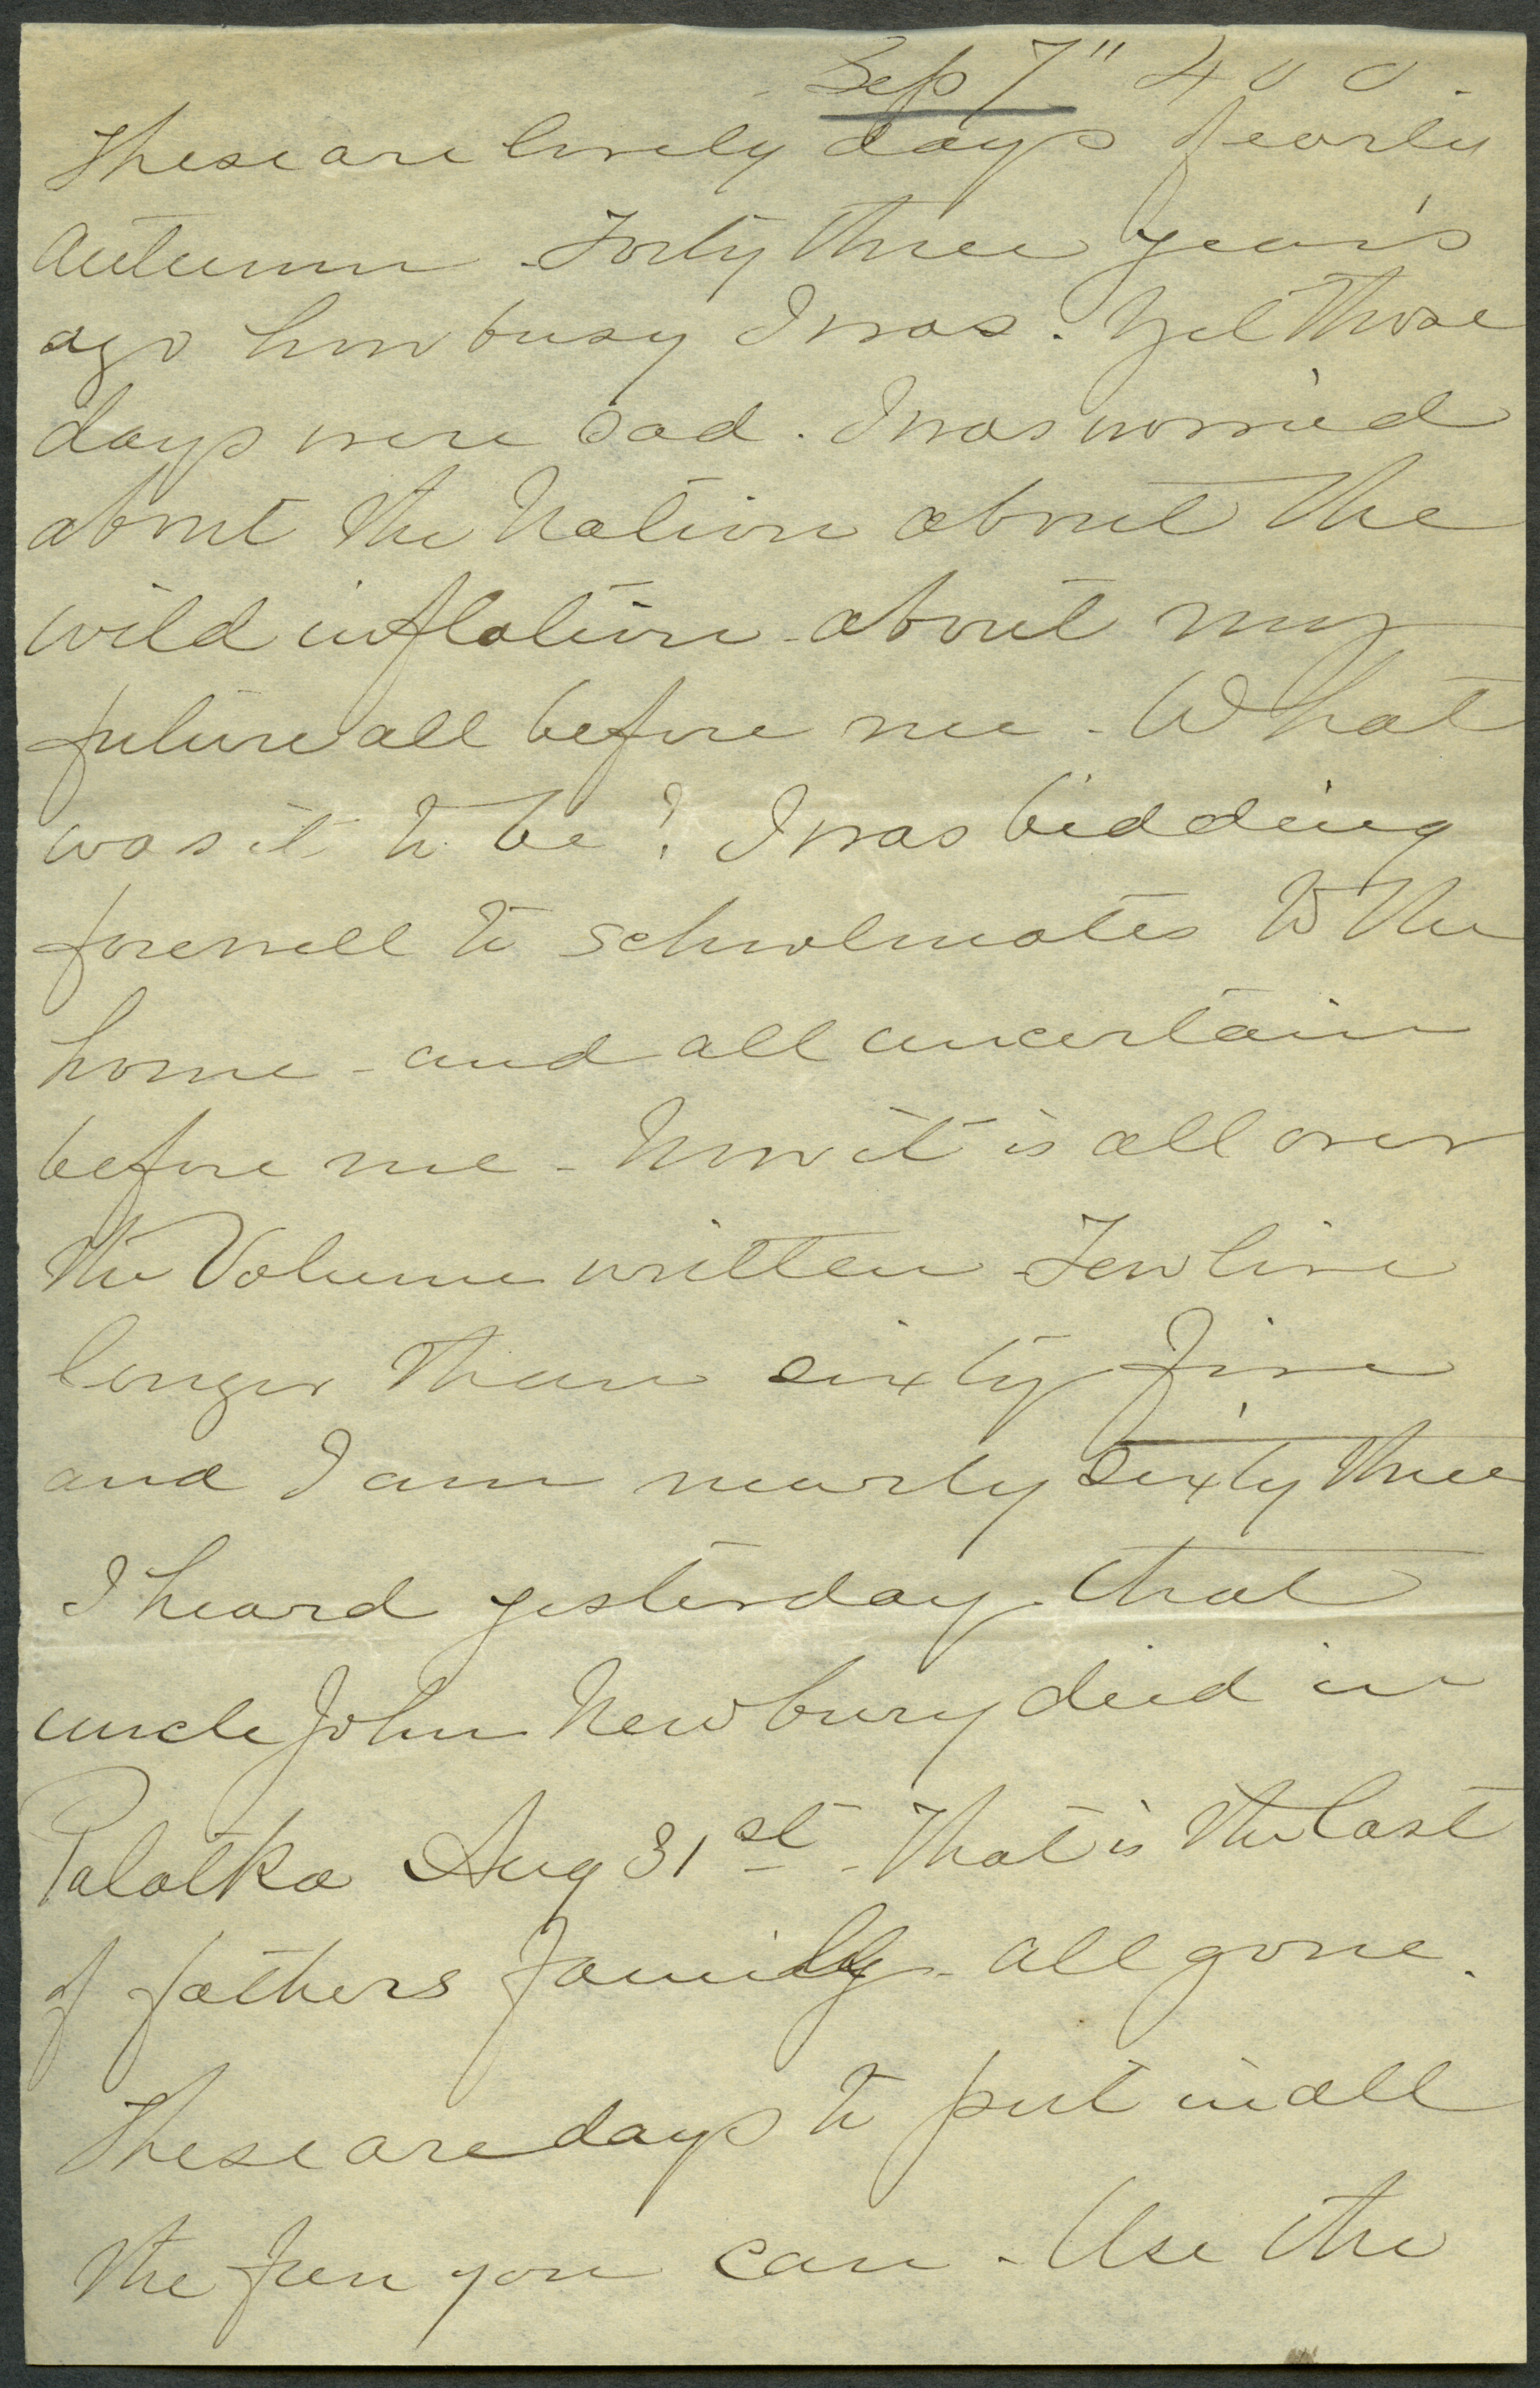 Sep 7" 400.
These are lovely days of early
Autumn - Forty three years
ago how busy I was. Yet those
days were sad. I was worried
about the Nation about the
wild inflation - about my
future all before me - What
was it to be? I was bidding
farewell to schoolmates to the
home - and all uncertain
before me - Now it is all over
the Volume written - Few live
longer than sixty five
and I am nearly sixty three
I heard yesterday that
uncle John Newbury died in
Palatka Aug 31st - That is the last
of fathers family - all gone.
These are days to put in all
the fun you can - Use the